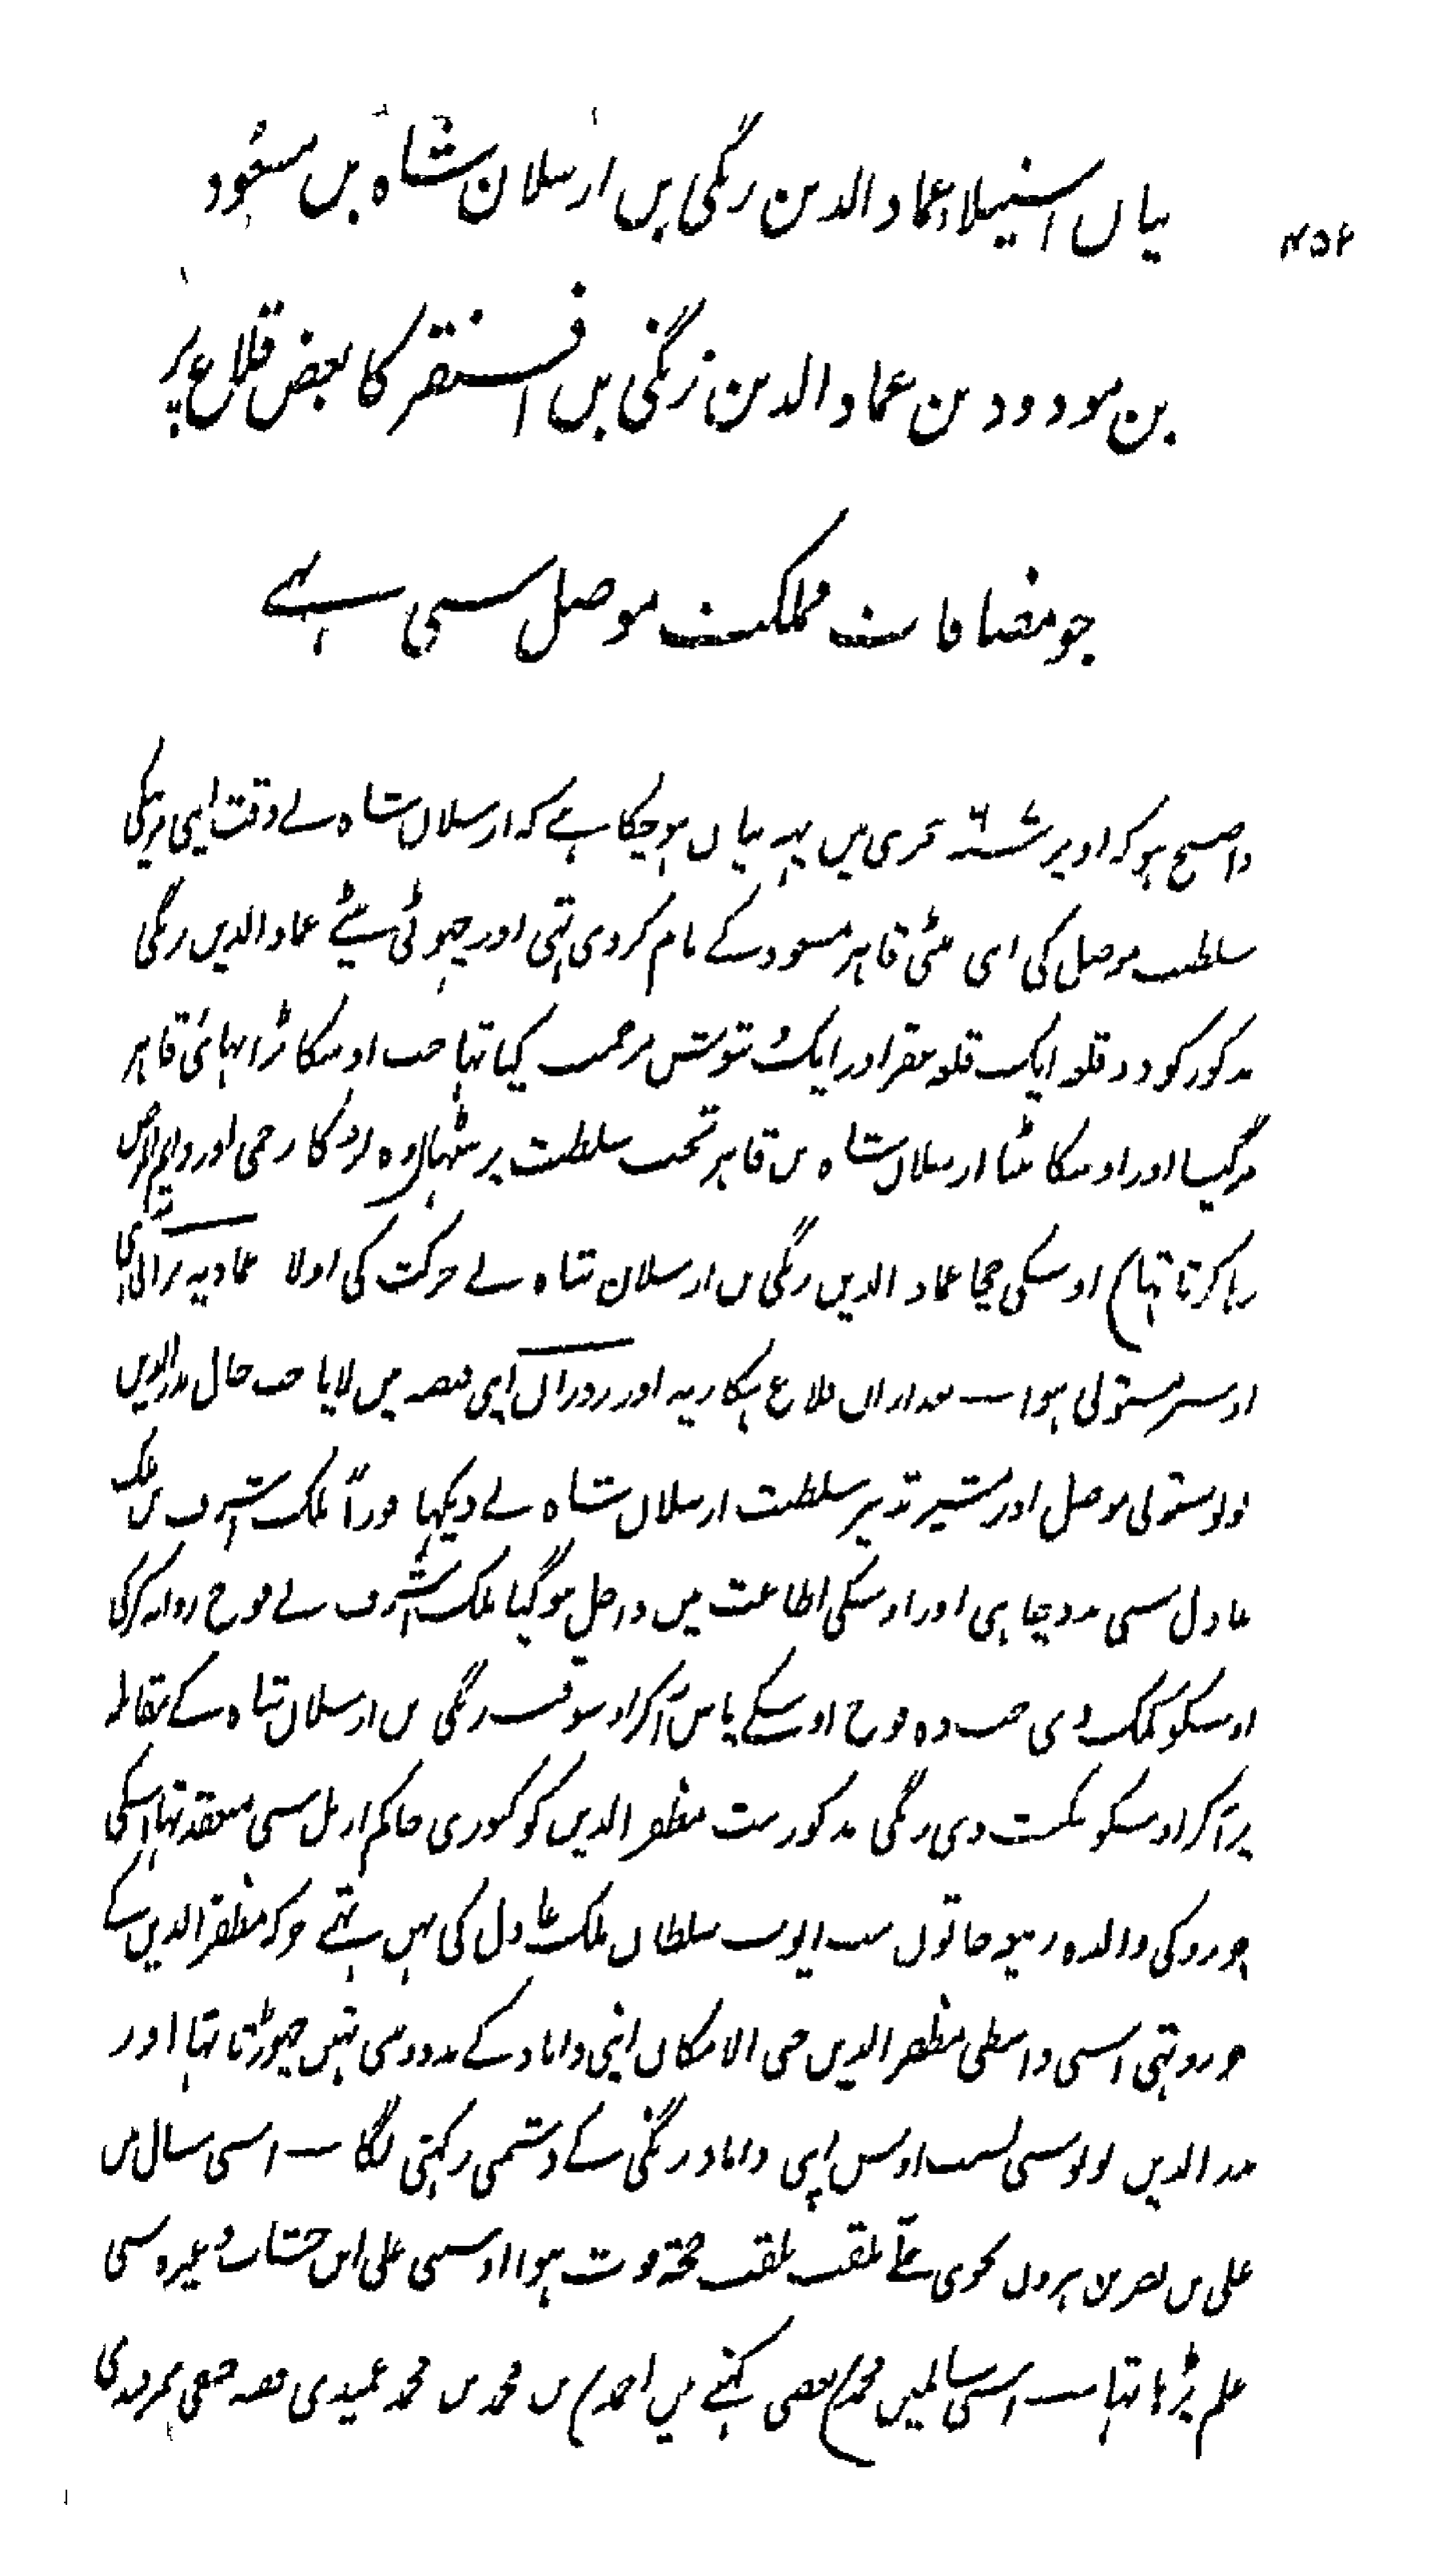 ۴۵۶
بیان استیلاء عماد الدین زنگی بن ارسلان شاہ بن مسعود
بن مودود بن عماد الدین زنگی بن اقسنقر کا بعض قلاع پر
جو مضافات مملکت موصل سی ہے
واضح ہو کہ اوپر ۶۰۷ ہجری میں یہہ بیان ہو چکا ہے کہ ارسلان شاہ نے وقت اپنی مرنیکی
سلطنت موصل کی اپنی بیٹی قاہر مسعود کے نام کر دی تہی اور چہوٹی بیٹے عماد الدین زنگی
مذکور کو دو قلعہ ایک قلعہ عقر اور ایک شوش مرحمت کیا تہا جب اوسکا بڑا بہائی قاہر
مرگیا اور اوسکا بیٹا ارسلان شاہ بن قاہر تخت سلطنت پر بیٹہا (وہ لڑکا زخمی اور دایم المرض
رہا کرتا تہا) اوسکی چچا عماد الدین زنگی بن ارسلان شاہ نے حرکت کی اولا عمادیہ پر آن کی
اوسپر مستولی ہوا — بعد ازاں قلاع ہکاریہ اور زوزان اپنی قبضہ میں لایا جب حال بدر الدین
لولو مستولی موصل اور مشیر تدبیر سلطنت ارسلان شاہ نے دیکہا فوراً ملک اشرف بن ملک
عادل سی مدد چاہی اور اوسکی اطاعت میں داخل ہو گیا ملک اشرف نے فوج روانہ کر کی
اوسکو کمک دی جب وہ فوج اوسکے پاس آکر اوسوقت زنگی بن ارسلان شاہ کے مقابلہ
پر آکر اوسکو شکست دی زنگی مذکور بنت مظفر الدین کوکبوری حاکم اربل سی منعقد تہا اسکی
جورو کی والدہ ربیعہ خاتون بنت ایوب سلطان ملک عادل کی بہن تہے جو کہ مظفر الدین کے
جورو تہی اسی واسطی مظفر الدین حتی الامکان اپنی داماد کے مدد سی نہیں چہوڑتا تہا اور
بدر الدین لولو سی بسبب اوس اپنی داماد زنگی کے دشمنی رکہنی لگا — اسی سال میں
علی بن نصر بن ہرون نحوی حلی ملقب بلقب حجۃ فوت ہوا اوسنی علی ابن خشاب وغیرہ سی
علم پڑہا تہا — اسی سالمیں محمد (بعضی کہتے ہیں احمد) بن محمد بن محمد عمیدی فقیہ حنفی سمرقندی